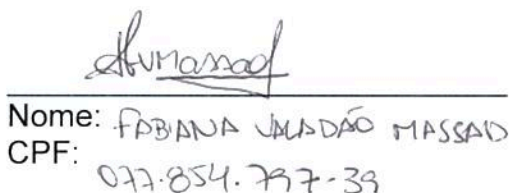 Nome: FABIANA VALADÃO MASSAD
CPF:
077.854.797-39